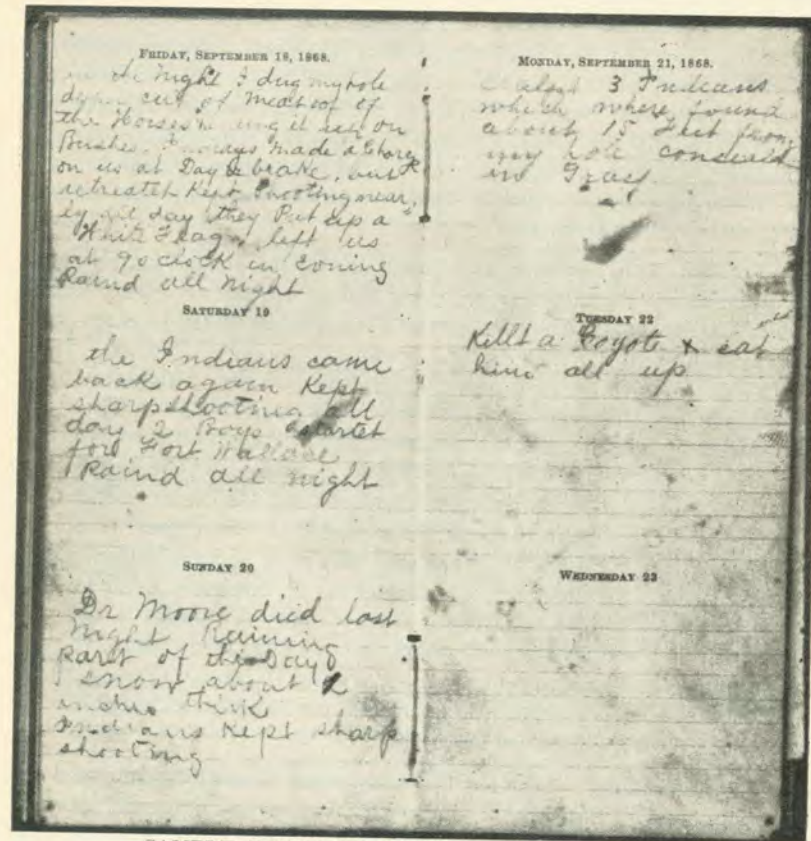 FRIDAY, SEPTEMBER 18, 1868.
in the Night I dug my hole
deper cut of meat oof of
the Horses & hung it up on
Bushes. Indians made a Charge
on us at Day brake, but
retreatet Kept Shooting near,
ly all day they Put up a
White Flag, left us
at 9 o clock in Evning
Raind all Night
SATURDAY 19
the Indians came
back again Kept
sharpshooting all
day 2 Boys startet
for Fort Wallace
Raind all night
SUNDAY 20
Dr Moore died last
Night Raining
part of the Day
snow about 1
inches thick
Indians Kept sharp
shooting
MONDAY, SEPTEMBER 21, 1868.
scalpt 3 Indians
which where found
about 15 Feet from
my hole conseald
in Grass
TUESDAY 22
Killt a Coyote & eat
him all up
WEDNESDAY 23